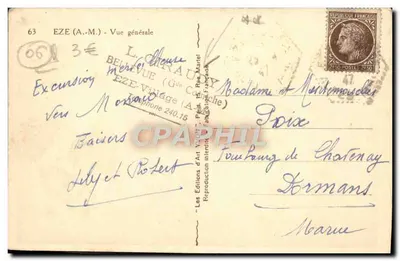 63 EZE (A.-M.) - Vue générale
06
3€
L. GIRAUDY
BELLEVUE (Gde Corniche)
EZE-Village (A.-M.)
Téléphone 240.15
Excursion merveilleuse
Vers Monaco
Baisers
Lily et Robert
Les Editions d'Art
Reproduction interdite
Madame et Mesdemoiselles
Poix
Faubourg de Chatenay
Dormans
Marne
47
CPARAMA